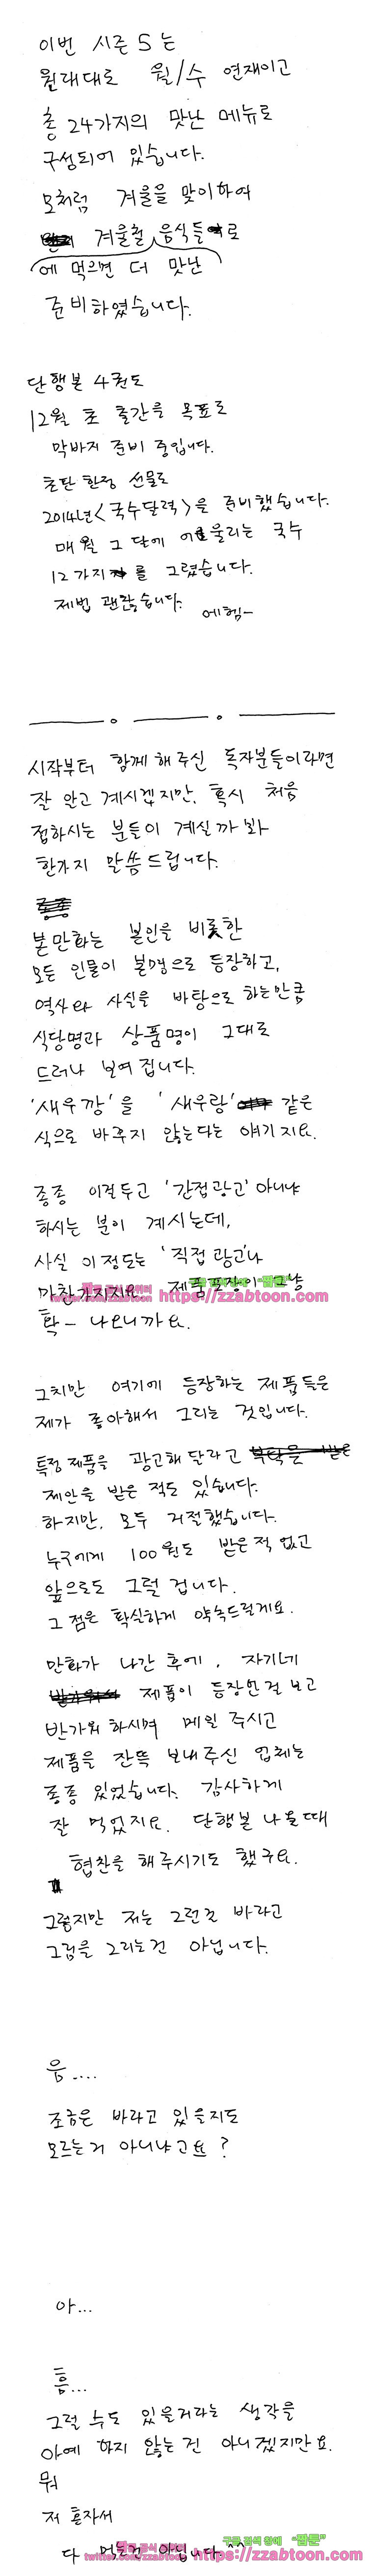 이번 시즌 5는
원래대로 월/수 연재이고
총 24가지의 맛난 메뉴로
구성되어 있습니다.
모처럼 겨울을 맞이하여
겨울철 음식들로
에 먹으면 더 맛난
준비하였습니다.
단행본 4권도
12월 초 출간을 목표로
막바지 준비 중입니다.
초판 한정 선물로
2014년 <국수달력>을 준비했습니다.
매월 그 달에 어울리는 국수
12가지를 그렸습니다.
제법 괜찮습니다. 에헴-
시작부터 함께 해 주신 독자분들이라면
잘 알고 계시겠지만, 혹시 처음
접하시는 분들이 계실까봐
한가지 말씀드립니다.
본 만화는 본인을 비롯한
모든 인물이 본명으로 등장하고,
역사와 사실을 바탕으로 하는만큼
식당명과 상품명이 그대로
드러나 보여집니다.
'새우깡'을 '새우랑' 같은
식으로 바꾸지 않는다는 얘기지요.
종종 이걸두고 '간접광고' 아니냐
하시는 분이 계시는데,
사실 이정도는 '직접광고'나
마찬가지지요. 제품포장이 그냥
구글 검색창에 "짭툰"
https://zzabtoon.com
확- 나오니까요.
그치만 여기에 등장하는 제품들은
제가 좋아해서 그리는 것입니다.
특정 제품을 광고해 달라고
제안을 받은 적도 있습니다.
하지만, 모두 거절했습니다.
누구에게 100원도 받은적 없고
앞으로도 그럴 겁니다.
그 점은 확실하게 약속드릴게요.
만화가 나간 후에, 자기네
제품이 등장한걸 보고
반가워 하시며 메일 주시고
제품을 잔뜩 보내주신 업체는
종종 있었습니다. 감사하게
잘 먹었지요. 단행본 나올때
협찬을 해 주시기도 했구요.
그렇지만 저는 그런걸 바라고
그림을 그리는건 아닙니다.
음....
조금은 바라고 있을지도
모르는거 아니냐고요?
아...
흠...
그럴 수도 있을거라는 생각을
아예 하지 않는건 아니겠지만요.
뭐
저 혼자서
구글 검색 창에 "짭툰"
다 먹는건 아닙니다 ^^
twitter.com/zzabtoon https://zzabtoon.com